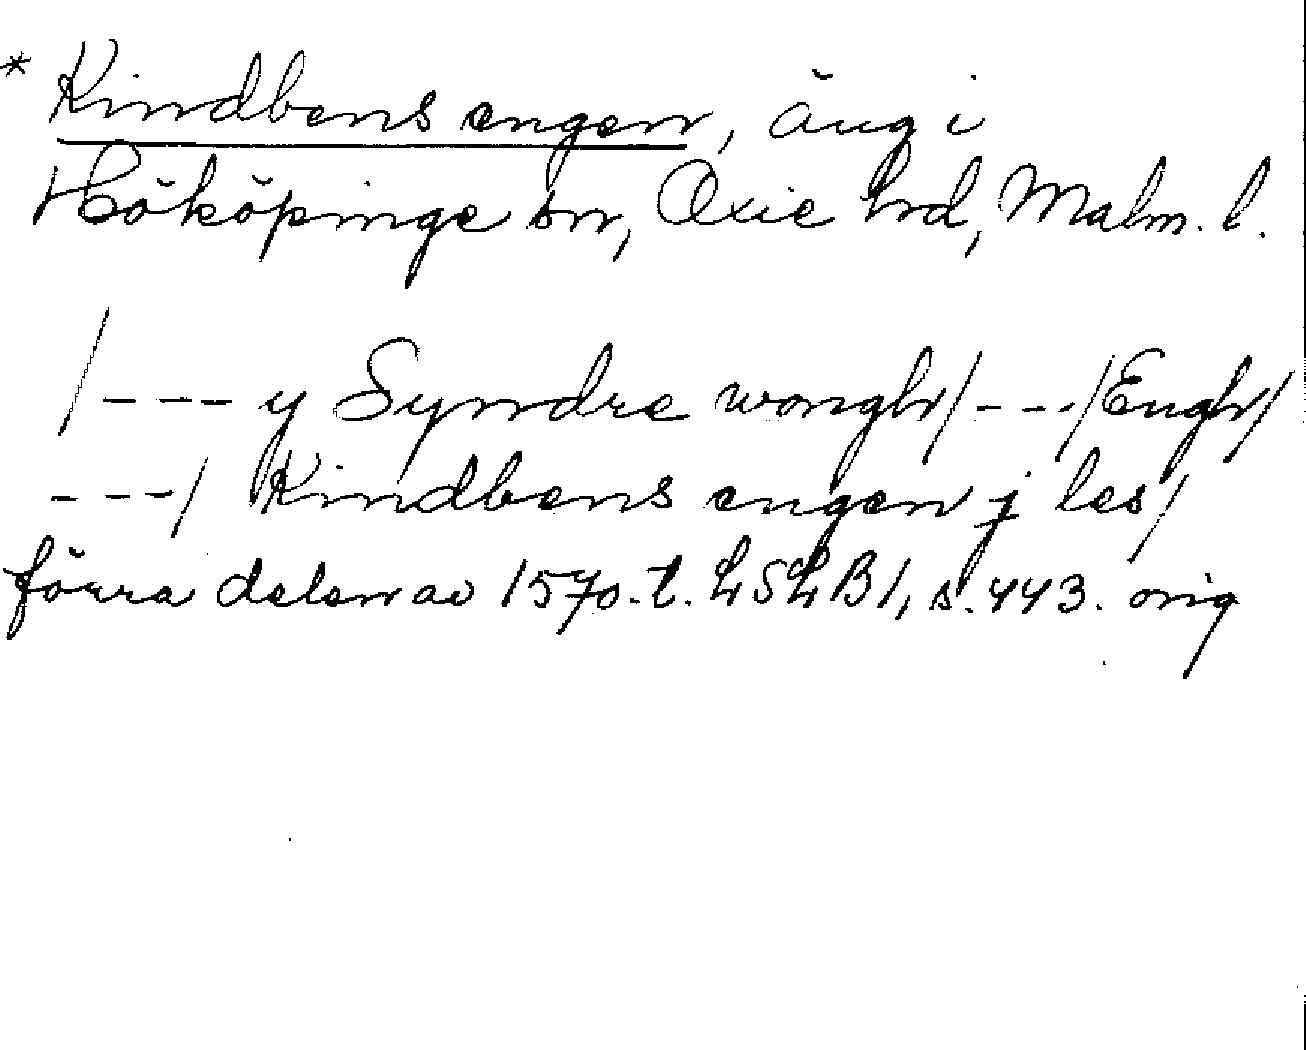 * Kindbens engen, äng i
Hököpinge sn, Oxie hrd, Malm. l.
/--- y Syndre wongh/---/Engh/
---/ Kindbens engen j les/
förra delen av 1570.t. LSLB1, s. 443. orig